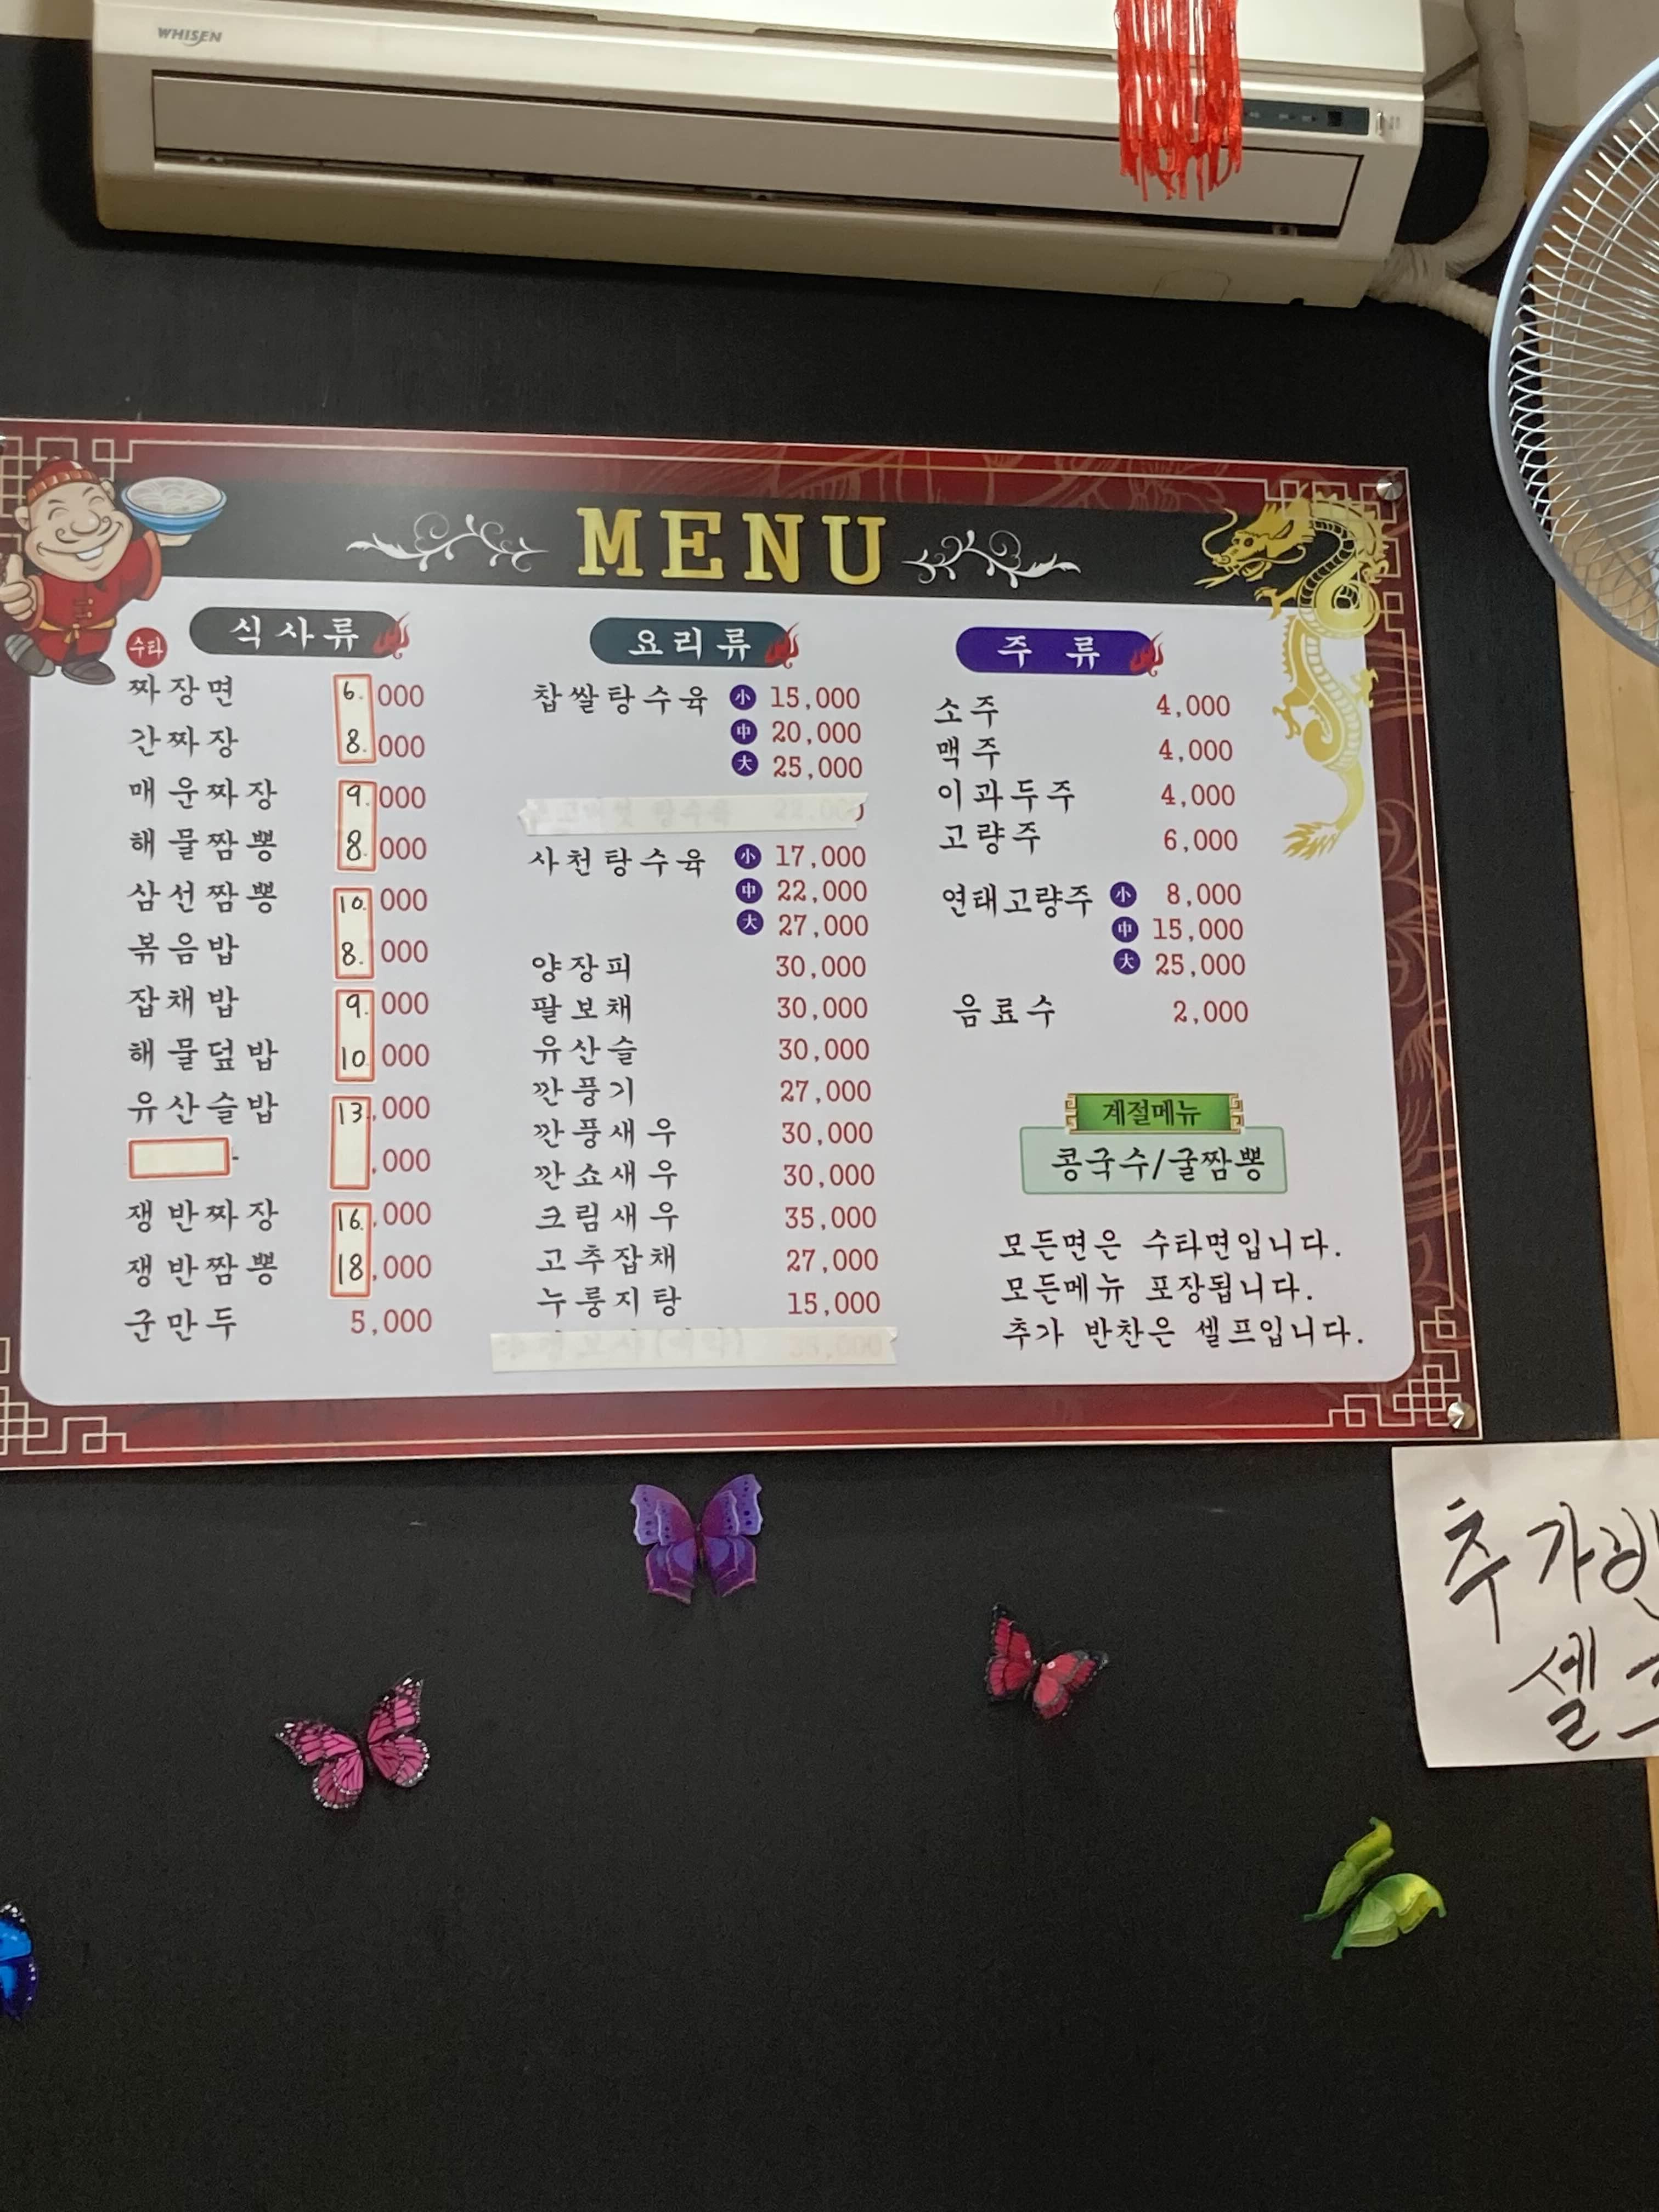 WHISEN
MENU
수타 식사류
짜장면 6.000
간짜장 8.000
매운짜장 9.000
해물짬뽕 8.000
삼선짬뽕 10.000
볶음밥 8.000
잡채밥 9.000
해물덮밥 10.000
유산슬밥 13,000
,000
쟁반짜장 16.,000
쟁반짬뽕 18,000
군만두 5,000
요리류
찹쌀탕수육 小 15,000
中 20,000
大 25,000
사천탕수육 小 17,000
中 22,000
大 27,000
양장피 30,000
팔보채 30,000
유산슬 30,000
깐풍기 27,000
깐풍새우 30,000
깐쇼새우 30,000
크림새우 35,000
고추잡채 27,000
누룽지탕 15,000
주류
소주 4,000
맥주 4,000
이과두주 4,000
고량주 6,000
연태고량주 小 8,000
中 15,000
大 25,000
음료수 2,000
계절메뉴
콩국수/굴짬뽕
모든면은 수타면입니다.
모든메뉴 포장됩니다.
추가 반찬은 셀프입니다.
추가반
셀프